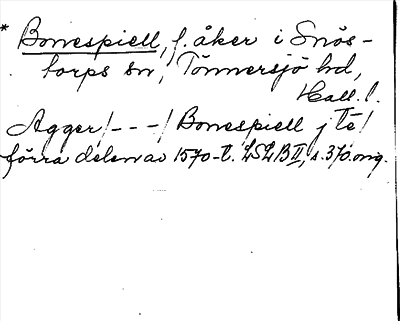 * Bonespiell, f. åker i Snös-
torps sn, Tönnersjö hd,
Hall. l.
Agger /---/ Bonespiell j te/
förra delen av 1570-t. LSLB II, s. 370. omg.